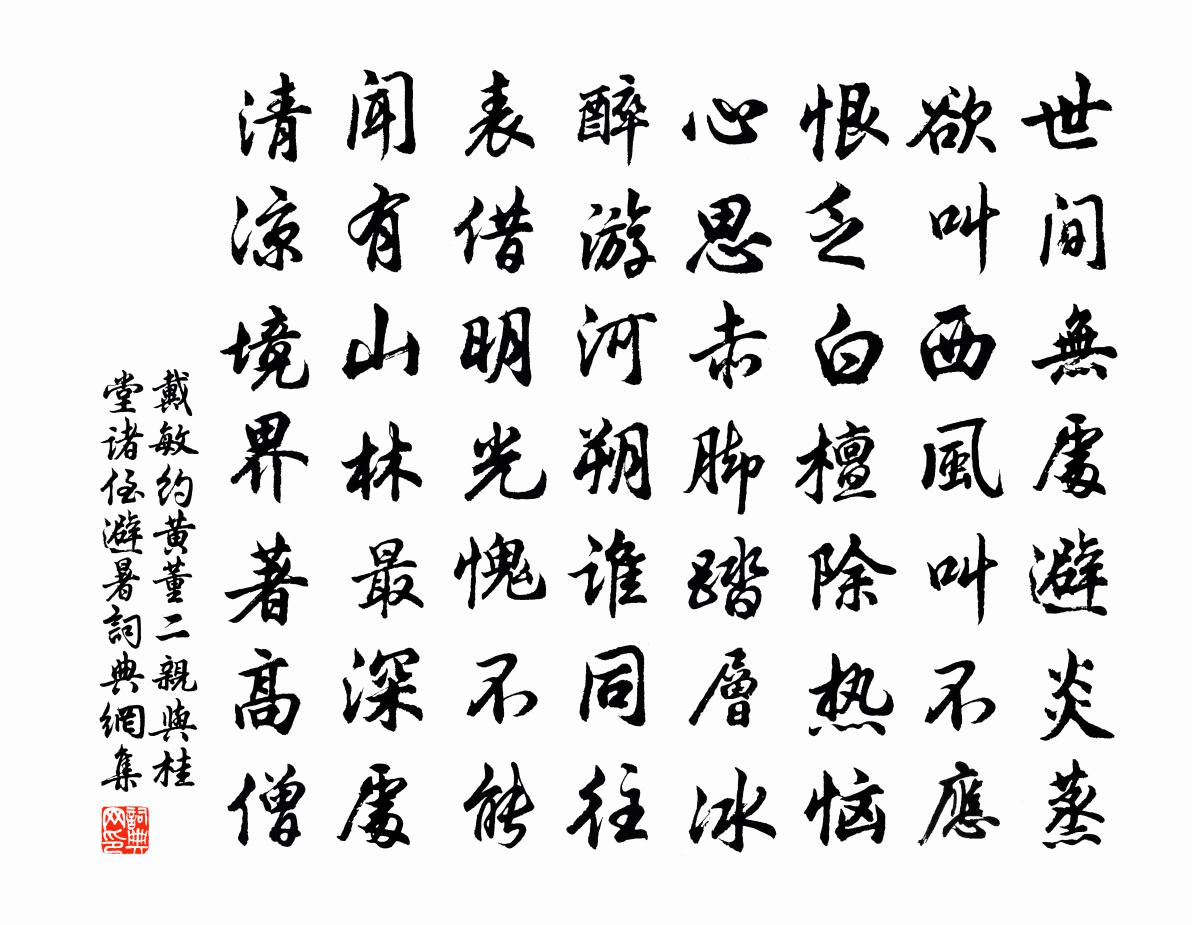 世间無處避炎蒸
欲叫西風叫不應
恨乏白檀除热恼
心思赤脚踏層冰
醉游河朔谁同往
表借明光愧不能
闻有山林最深處
清凉境界著高僧
戴敏约黄董二親與桂
堂诸侄避暑詞典網集
詞典
网印